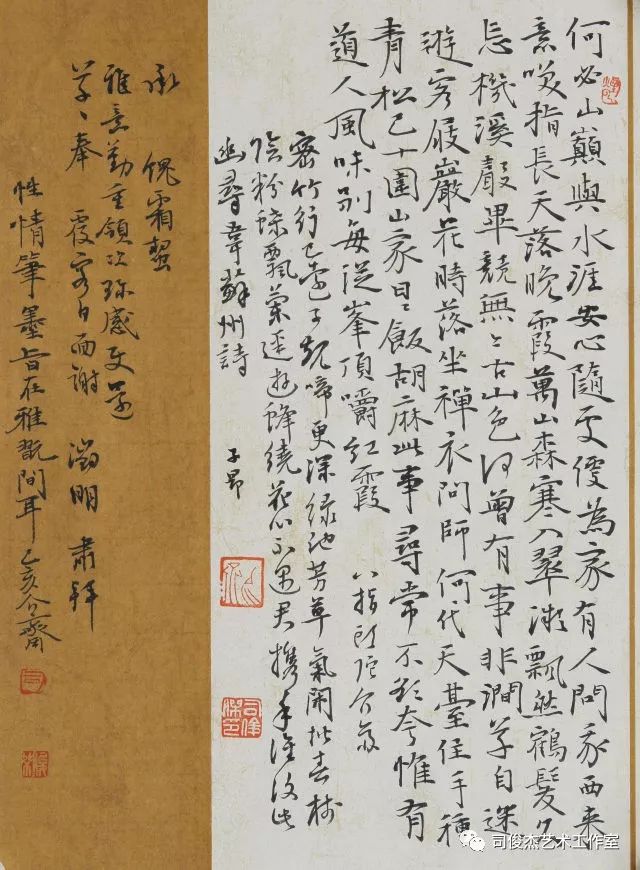 何必山巔與水涯安心隨處便為家有人問我西來
意笑指長天落晚霞萬山森寒入翠微飄然鶴髮久
忘機溪聲畢競無今古山色何曾有事非澗草自迷
遊客屐巖花時落坐禪衣問師何代天臺住手種
青松已十圍山家日日飯胡麻此事尋常不欲夸惟有
道人風味別每從峯頂嚼紅霞 八指頭陀 介齋
密竹行已遠子規啼更深綠池芳草氣閒齋春樹
陰粉蝶飄蘭逕遊蜂繞花心不遇君攜手誰復此
幽尋韋蘇州詩 子昂
承 愧霜蟹
雅意勤重領次珍感
草草奉 覆容日面謝 徵明 肅拜
性情筆墨旨在雅翫間耳己亥介齋
司俊杰艺术工作室